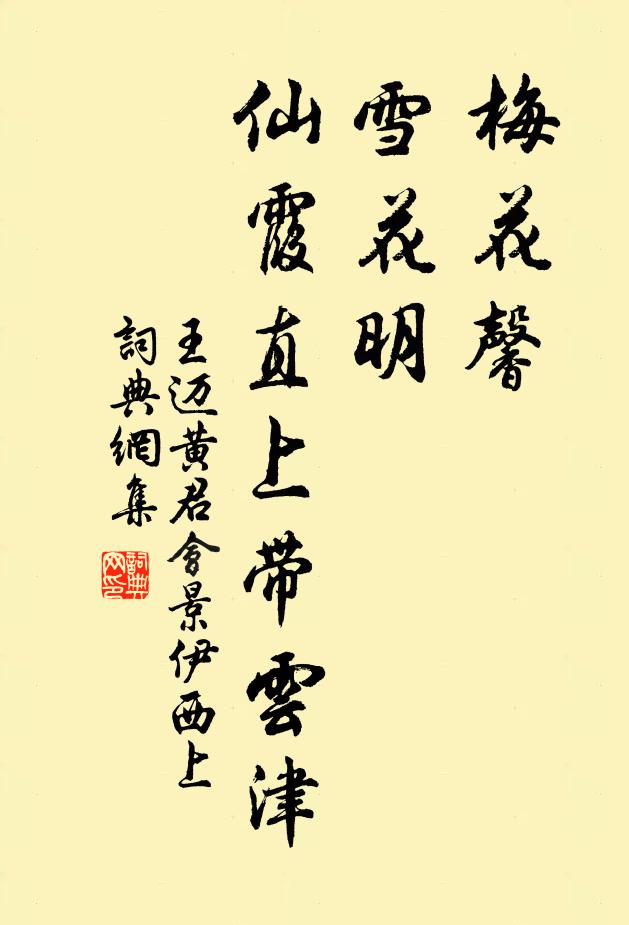 梅花馨
雪花明
仙霞直上带雲津
王迈黄君會景伊西上
詞典網集
詞典网印